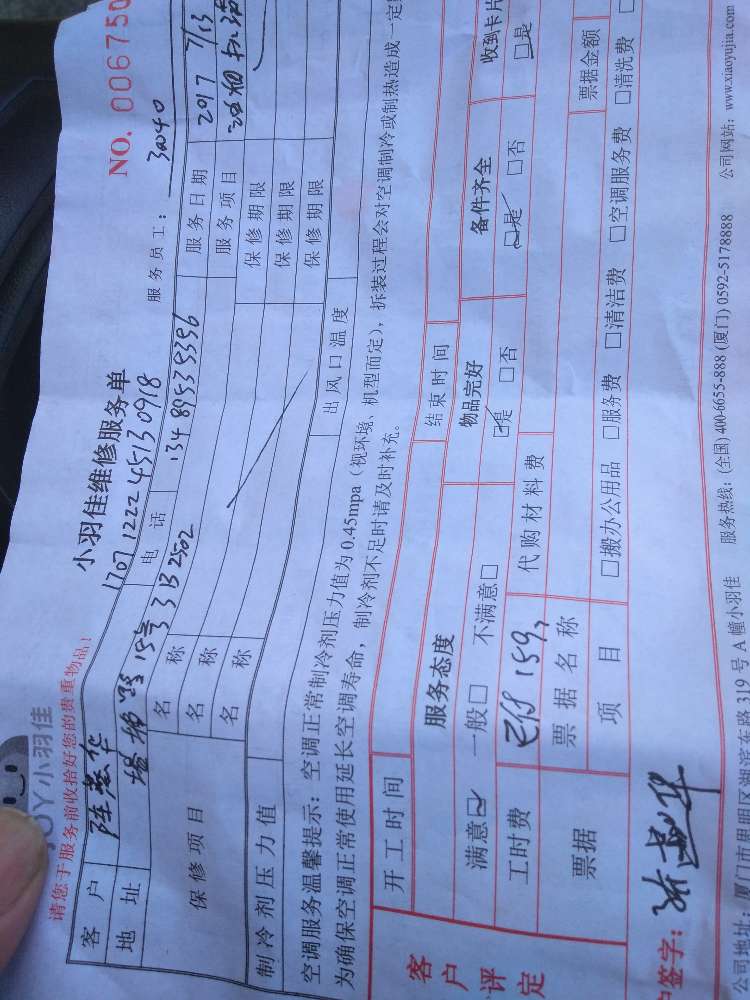 JOY小羽佳
小羽佳维修服务单
NO. 006750
请您于服务前收拾好您的贵重物品!
1707 1222 4513 0918
服务员工: 30040
客户
电话 134 8953 5396
服务日期 2017 7/13
地址 15号 313 2502
服务项目
保修项目
名称
保修期限
名称
保修期限
名称
保修期限
制冷剂压力值
出风口温度
空调服务温馨提示:空调正常制冷剂压力值为0.45mpa(视环境、机型而定),拆装过程会对空调制冷或制热造成一定
为确保空调正常使用延长空调寿命,制冷剂不足时请及时补充。
客户评定
开工时间
结束时间
服务态度
物品完好
备件齐全
收到卡片
满意☑ 一般□ 不满意□
☑是 □否
☑是 □否
□是
工时费 已付159
代购材料费
票据
票据名称
票据金额
项目
□搬办公用品 □服务费 □清洁费 □空调服务费 □清洗费
户签字:
公司地址:厦门市思明区湖滨东路319号A幢小羽佳 服务热线:(全国)400-6655-888 (厦门)0592-5178888 公司网站:www.xiaoyujia.com